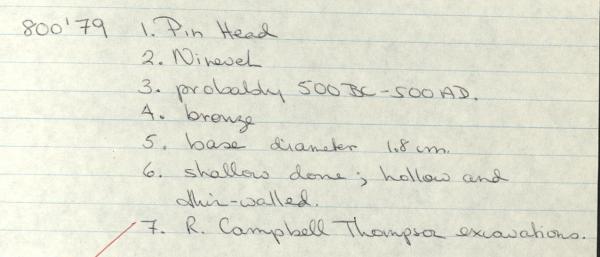 800'79 1. Pin Head
2. Nineveh
3. probably 500 BC - 500 AD.
4. bronze
5. base diameter 1.8 cm.
6. shallow dome; hollow and
thin-walled.
7. R. Campbell Thompson excavations.